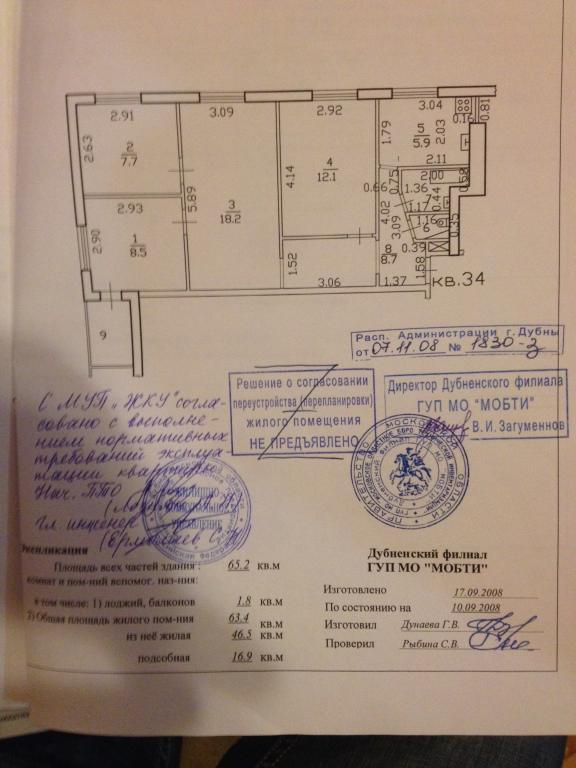 2.91
3.09
2.92
3.04
0.16
0.81
2.63
2
7.7
5.89
3
18.2
4.14
4
12.1
1.79
5
5.9
2.03
2.11
2.93
2.90
1
8.5
0.66
0.75
2.00
1.36
0.58
0.44
7
1.17
1.16
6
0.35
4.02
3.09
0.39
8
8.7
1.58
1.52
3.06
1.37
кв.34
9
Расп. Администрации г.Дубны
от 07.11.08 № 1830-з
Решение о согласовании
переустройства (перепланировки)
жилого помещения
НЕ ПРЕДЪЯВЛЕНО
Директор Дубненского филиала
ГУП МО "МОБТИ"
В. И. Загуменнов
С МУП „ЖКУ" согла-
совано с выполне-
нием нормативных
требований эксплуа-
тации квартиры
Нач. ПТО
гл. инженер
ЖИЛИЩНО
КОММУНАЛЬНОЕ
УПРАВЛЕНИЕ
ПРАВИТЕЛЬСТВО МОСКОВСКОЙ ОБЛАСТИ
Экспликация
Площадь всех частей здания : 65.2 кв.м
комнат и пом-ний вспомог. наз-ния:
в том числе: 1) лоджий, балконов 1.8 кв.м
2) Общая площадь жилого пом-ния 63.4 кв.м
из неё жилая 46.5 кв.м
подсобная 16.9 кв.м
Дубненский филиал
ГУП МО "МОБТИ"
Изготовлено 17.09.2008
По состоянию на 10.09.2008
Изготовил Дунаева Г.В.
Проверил Рыбина С.В.